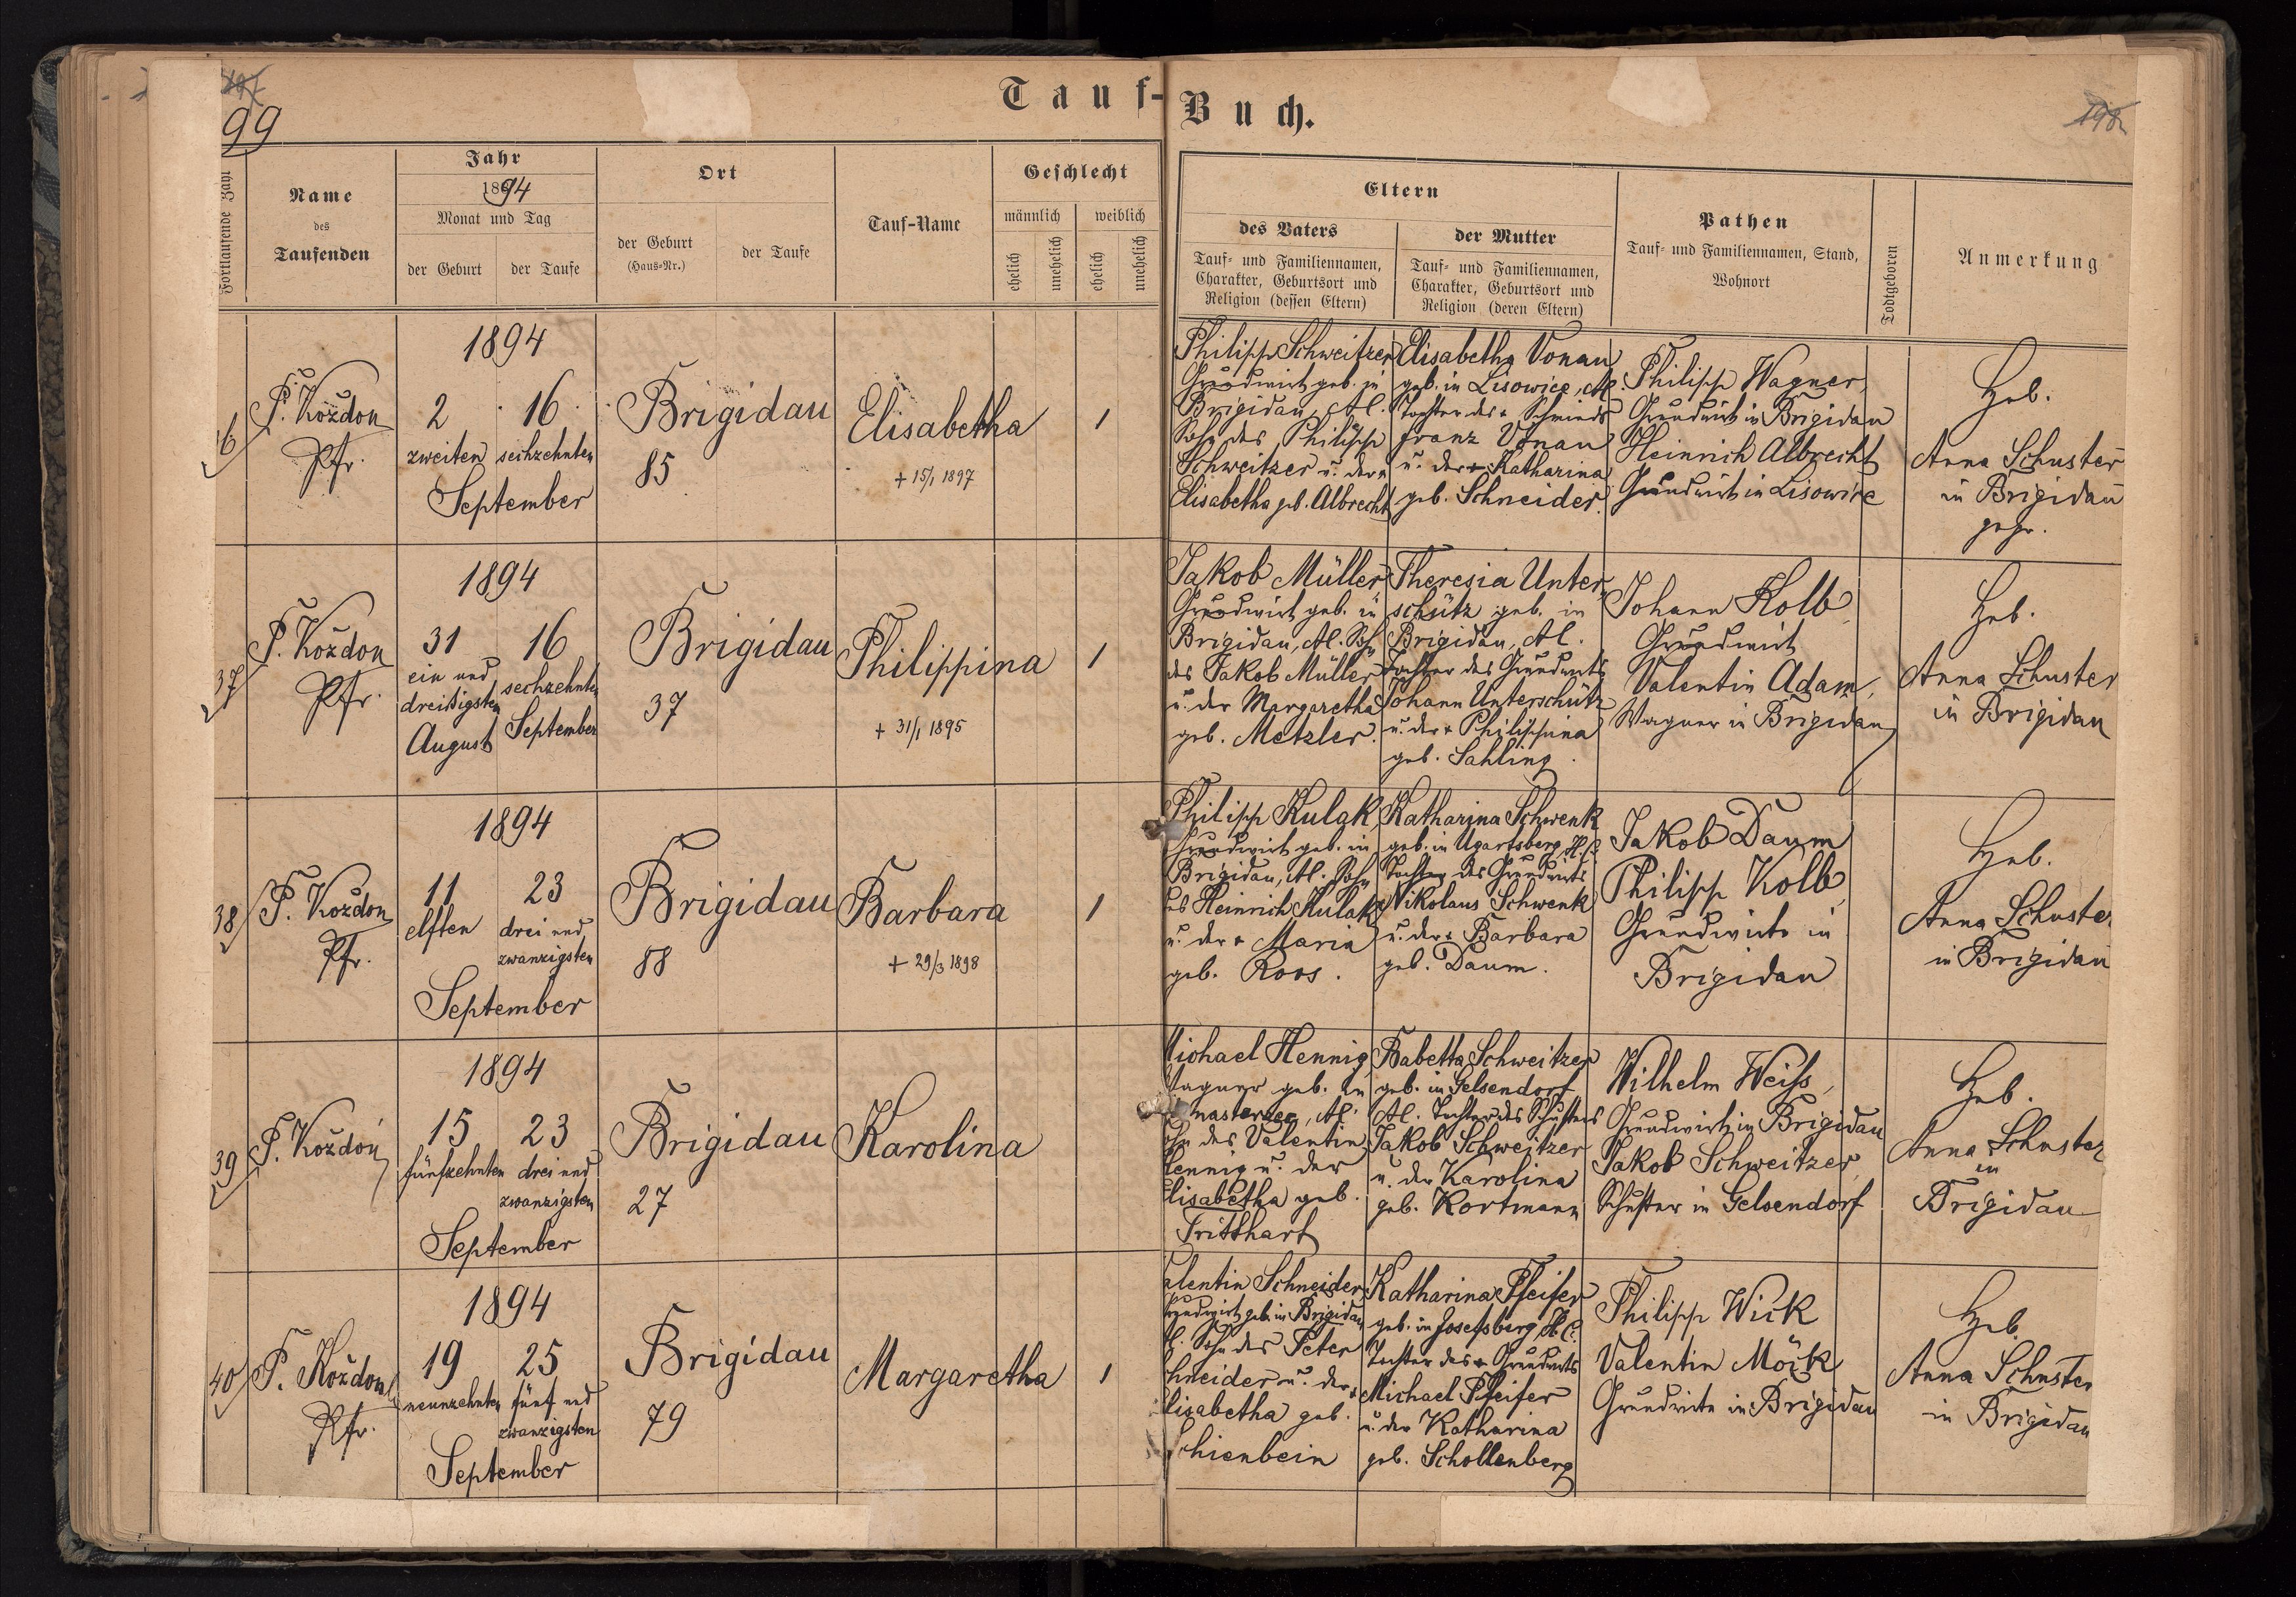 99
198
Tauf-Buch.
Fortlaufende Zahl
Name
des
Taufenden
Jahr
1894
Monat und Tag
der Geburt
der Taufe
Ort
der Geburt
(Haus-Nr.)
der Taufe
Tauf-Name
Geschlecht
männlich
weiblich
ehelich
unehelich
ehelich
unehelich
Eltern
des Vaters
Tauf- und Familiennamen,
Charakter, Geburtsort und
Religion (dessen Eltern)
der Mutter
Tauf- und Familiennamen,
Charakter, Geburtsort und
Religion (deren Eltern)
Pathen
Tauf- und Familiennamen, Stand,
Wohnort
Todtgeboren
Anmerkung
6
P. Koždon
Pfr.
1894
2
zweiten
16
sechzehnten
September
Brigidau
85
Elisabetha
+ 15/1 1897
1
Philipp Schweitzer
Grundwirt geb. in
Brigidau, Al.
Sohn des Philipp
Schweitzer u. der
Elisabetha geb. Albrecht
Elisabetha Vonau
geb. in Lisowice, Al.
Tochter des + Schmieds
Franz Vonau
u. der + Katharina
geb. Schneider.
Philipp Wagner,
Grundwirt in Brigidau
Heinrich Albrecht
Grundwirt in Lisowice
Heb.
Anna Schuster
in Brigidau
gepr.
37
P. Koždon
Pfr.
1894
31
ein und
dreißigsten
August
16
sechzehnten
September
Brigidau
37
Philippina
+ 31/1 1895
1
Jakob Müller
Grundwirt geb. in
Brigidau, Al. Sohn
des Jakob Müller
u. der Margaretha
geb. Metzler.
Theresia Unter
schütz geb. in
Brigidau, Al.
Tochter des Grundwirts
Johann Unterschütz
u. der + Philippina
geb. Sahling.
Johann Kolb
Grundwirt
Valentin Adam,
Wagner in Brigidau
Heb.
Anna Schuster
in Brigidau
38
P. Koždon
Pfr.
1894
11
elften
23
drei und
zwanzigsten
September
Brigidau
88
Barbara
+ 29/3 1898
1
Philipp Kulak
Grundwirt geb. in
Brigidau, Al. Sohn
des Heinrich Kulak
u. der + Maria
geb. Roos.
Katharina Schwenk
geb. in Ugartsberg, H.C.
Tochter des Grundwirts
Nikolaus Schwenk
u. der + Barbara
geb. Daum.
Jakob Daum
Philipp Kolb
Grundwirte in
Brigidau
Heb.
Anna Schuster
in Brigidau
39
P. Koždoń
1894
15
fünfzehnten
23
drei und
zwanzigsten
September
Brigidau
27
Karolina
Michael Hennig
Wagner geb. in
Al.
Sohn des Valentin
Hennig u. der
Elisabetha geb.
Fritthart
Babetta Schweitzer
geb. in Gelsendorf
Al. Tochter des Schusters
Jakob Schweitzer
u. der Karolina
geb. Kortmann
Wilhelm Weiss,
Grundwirt in Brigidau
Jakob Schweitzer
Schuster in Gelsendorf
Heb.
Anna Schuster
in
Brigidau
40
P. Koždon
Pfr.
1894
19
neunzehnten
25
fünf und
zwanzigsten
September
Brigidau
79
Margaretha
1
Valentin Schneider
Grundwirt geb. in Brigidau
Al. Sohn des Peter
Schneider u. der +
Elisabetha geb.
Schienbein
Katharina Pfeifer
geb. in Josefsberg, H.C.
Tochter des + Grundwirts
Michael Pfeifer
u. der Katharina
geb. Schollenberg
Philipp Wick
Valentin Möck
Grundwirte in Brigidau
Heb.
Anna Schuster
in Brigidau